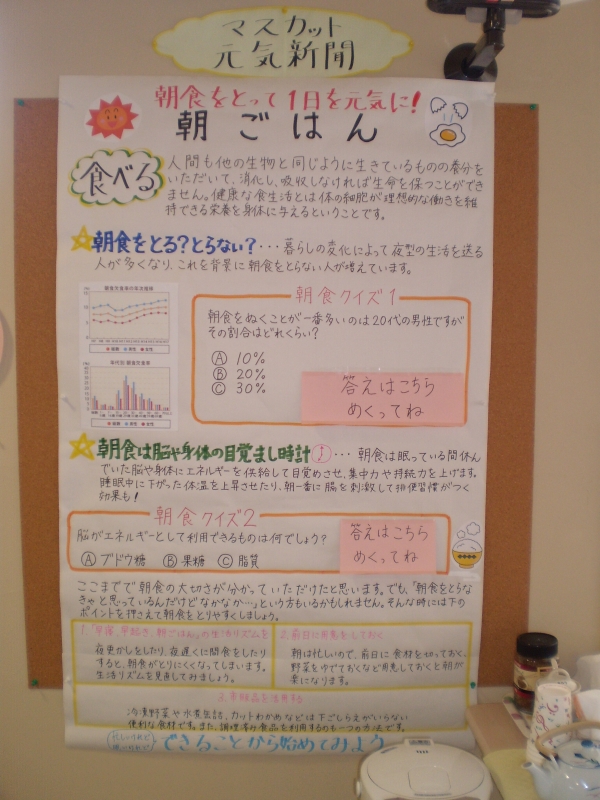 マスカット
元気新聞
朝食をとって1日を元気に!
朝ごはん
食べる
人間も他の生物と同じように生きているものの養分を
いただいて、消化し、吸収しなければ生命を保つことができ
ません。健康な食生活とは体の細胞が理想的な働きを維
持できる栄養を身体に与えるということです。
朝食をとる?とらない?・・・暮らしの変化によって夜型の生活を送る
人が多くなり、これを背景に朝食をとらない人が増えています。
朝食クイズ1
朝食をぬくことが一番多いのは20代の男性ですが
その割合はどれくらい?
Ⓐ 10%
Ⓑ 20%
Ⓒ 30%
答えはこちら
めくってね
朝食は脳や身体の目覚まし時計♪・・・朝食は眠っている間休ん
でいた脳や身体にエネルギーを供給して目覚めさせ、集中力や持続力を上げます。
睡眠中に下がった体温を上昇させたり、朝一番に腸を刺激して排便習慣がつく
効果も!
朝食クイズ2
脳がエネルギーとして利用できるものは何でしょう?
Ⓐブドウ糖 Ⓑ果糖 Ⓒ脂質
答えはこちら
めくってね
ここまでで朝食の大切さが分かっていただけたと思います。でも、「朝食をとらな
きゃと思っているんだけどなかなか…」という方もいるかもしれません。そんな時には下の
ポイントを押さえて朝食をとりやすくしましょう。
1.「早寝、早起き、朝ごはん」の生活リズムを
夜更かしをしたり、夜遅くに間食をしたり
すると、朝食がとりにくくなってしまいます。
生活リズムを見直してみましょう。
2.前日に用意をしておく
朝は忙しいので、前日に食材を切っておく、
野菜をゆでておくなど用意しておくと朝が
楽になります。
を活用する
冷凍野菜や水煮缶詰、カットわかめなどは下ごしらえがいらない
便利な食材です。また、調理済み食品を利用するのも一つの方法です。
できることから始めてみよう